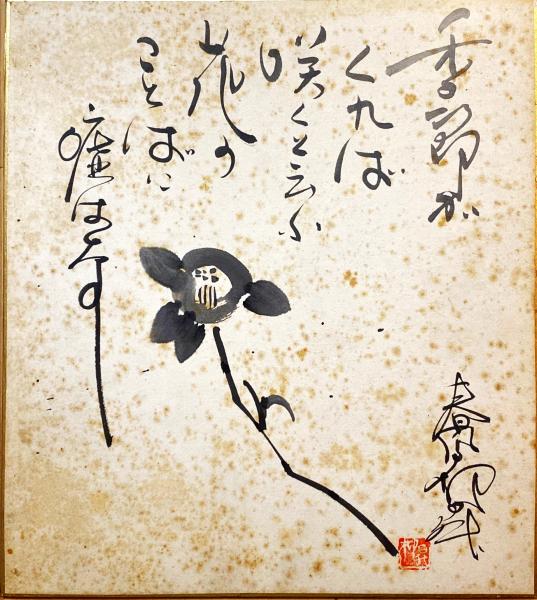 季節が
くれば
咲くと云ふ
花の
ことばに
嘘はなし